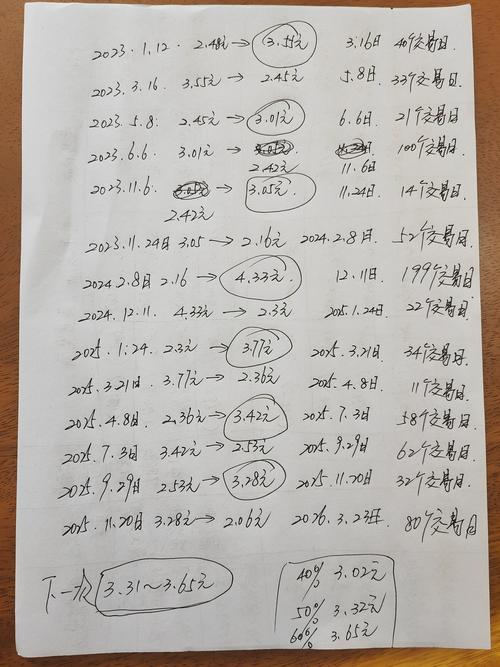 2023.1.12. 2.48元→3.55元 3.16日 40个交易日.
2023.3.16. 3.55元→2.45元 5.8日. 33个交易日
2023.5.8. 2.45元→3.01元 6.6日. 21个交易日
2023.6.6. 3.01元→ 100个交易日
2.42元 11.6日
2023.11.6. →3.05元. 11.24日. 14个交易日.
2.42元
2023.11.24日 3.05→2.16元 2024.2.8日. 52个交易日
2024.2.8日 2.16→4.33元 12.11日. 199个交易日
2024.12.11. 4.33元→2.3元 2025.1.24日. 22个交易日.
2025.1.24. 2.3元→3.77元 2025.3.21日 34个交易日.
2025.3.21日. 3.77元→2.36元 2025.4.8日. 11个交易日.
2025.4.8日. 2.36元→3.42元 2025.7.3日 58个交易日
2025.7.3日 3.42元→2.53元 2025.9.29日 62个交易日.
2025.9.29日 2.53元→3.28元. 2025.11.20日 32个交易日.
2025.11.20日 3.28元→2.06元 2026.3.23日. 80个交易日
下一次 3.31~3.65元
40% 3.02元
50% 3.32元
60% 3.65元